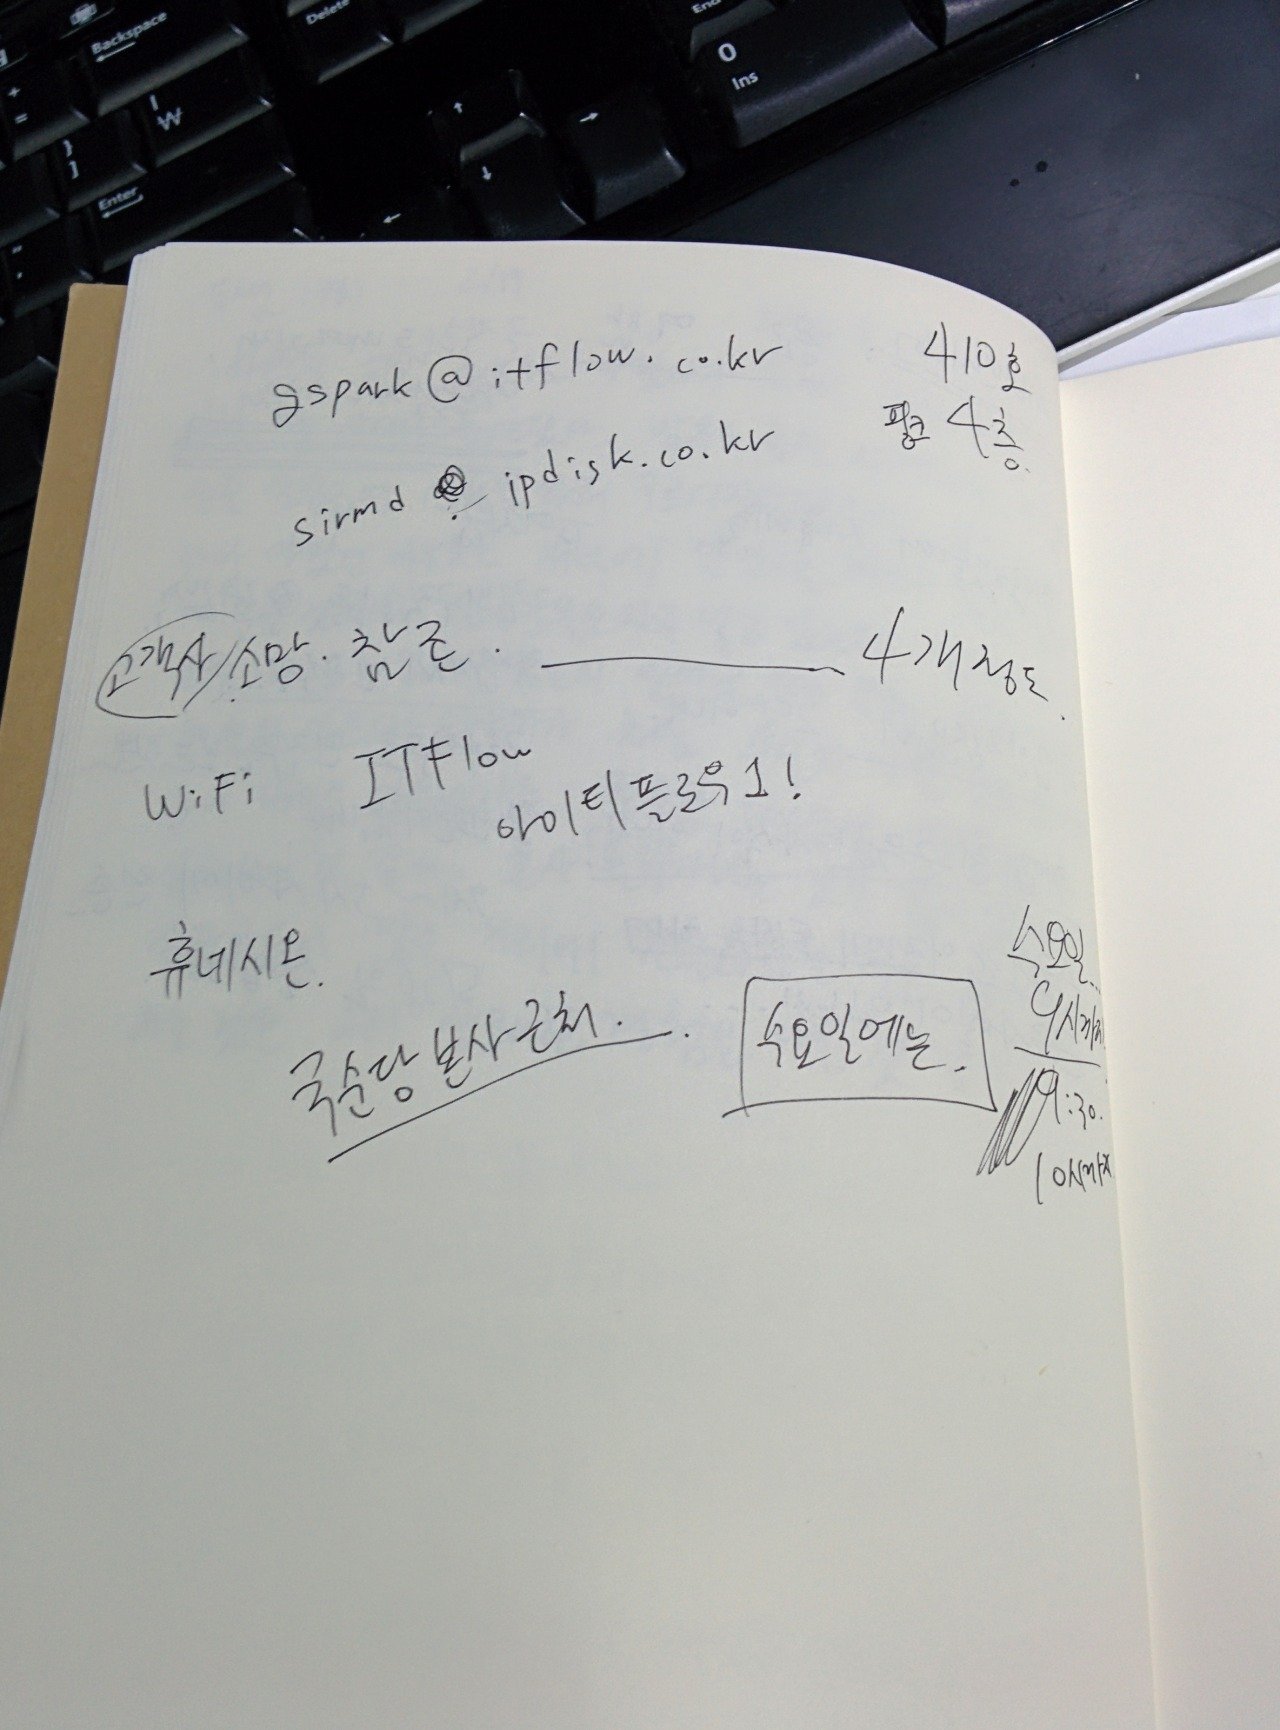 Backspace
Delete
+
=
|
₩
}
]
Enter
0
Ins
↑
→
↓
←
gspark@itflow.co.kr
410호
핑크 4층.
sirmd . ipdisk.co.kr
고객사/소망. 참존. 4개정도.
WiFi ITFlow
아이티플로우1!
휴네시온.
국순당본사근처.
수요일에는.
수요일
9시까지
9:30.
10시까지